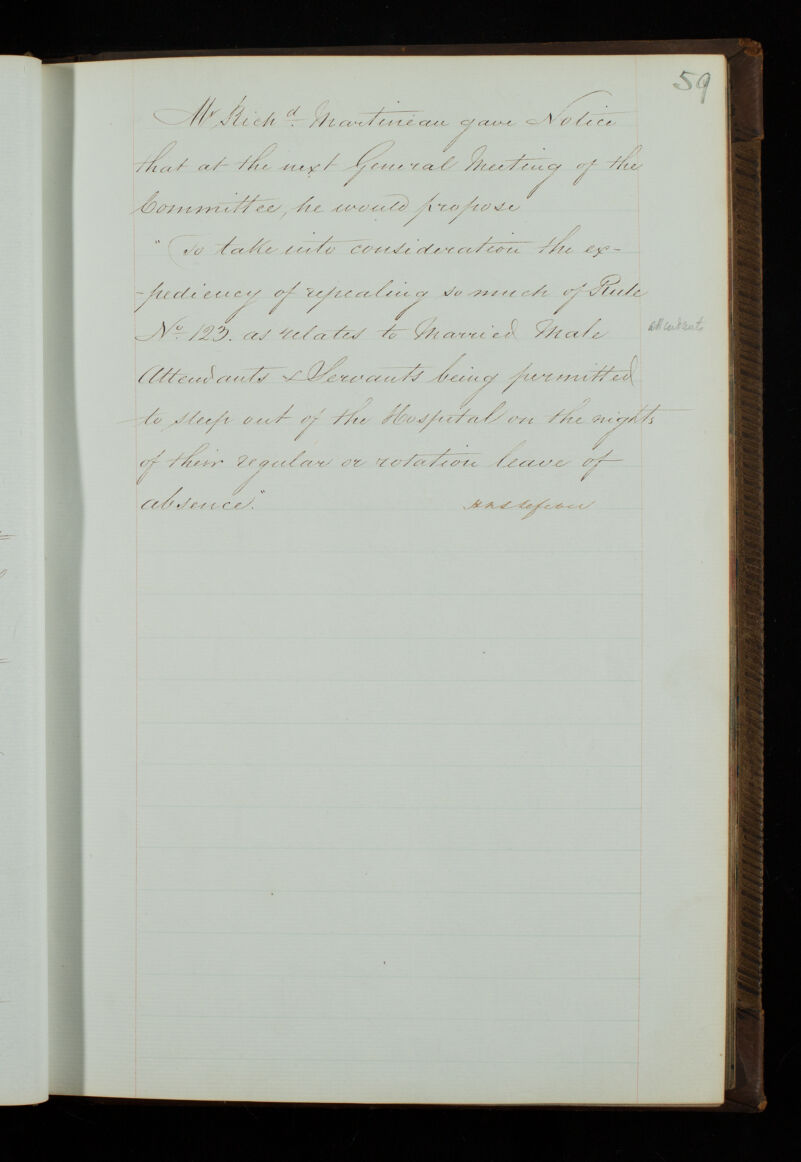 59
Mr Richd. Martineau gave Notice
that at the next General Meeting of the
Committee, he would propose
"To take into consideration the ex-
-pediency of repealing so much of Rule
No. 123. as relates to Married Male
attendants
Attendants & Servants being permitted
to sleep out of the Hospital on the nights
of their regular or rotation leave of
absence."